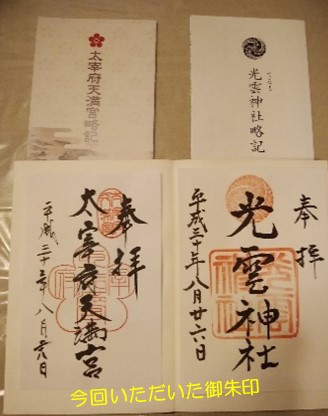 太宰府天満宮略記
てるも
光雲神社略記
奉拝
太宰府天満宮
平成三十年八月廿六日
奉拝
光雲神社
平成三十年八月廿六日
今回いただいた御朱印